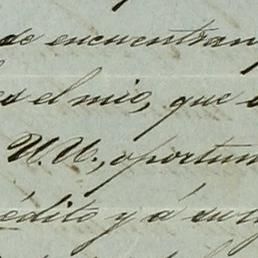 se encuentran
es el mio, que
UU., oportun
édito y á su